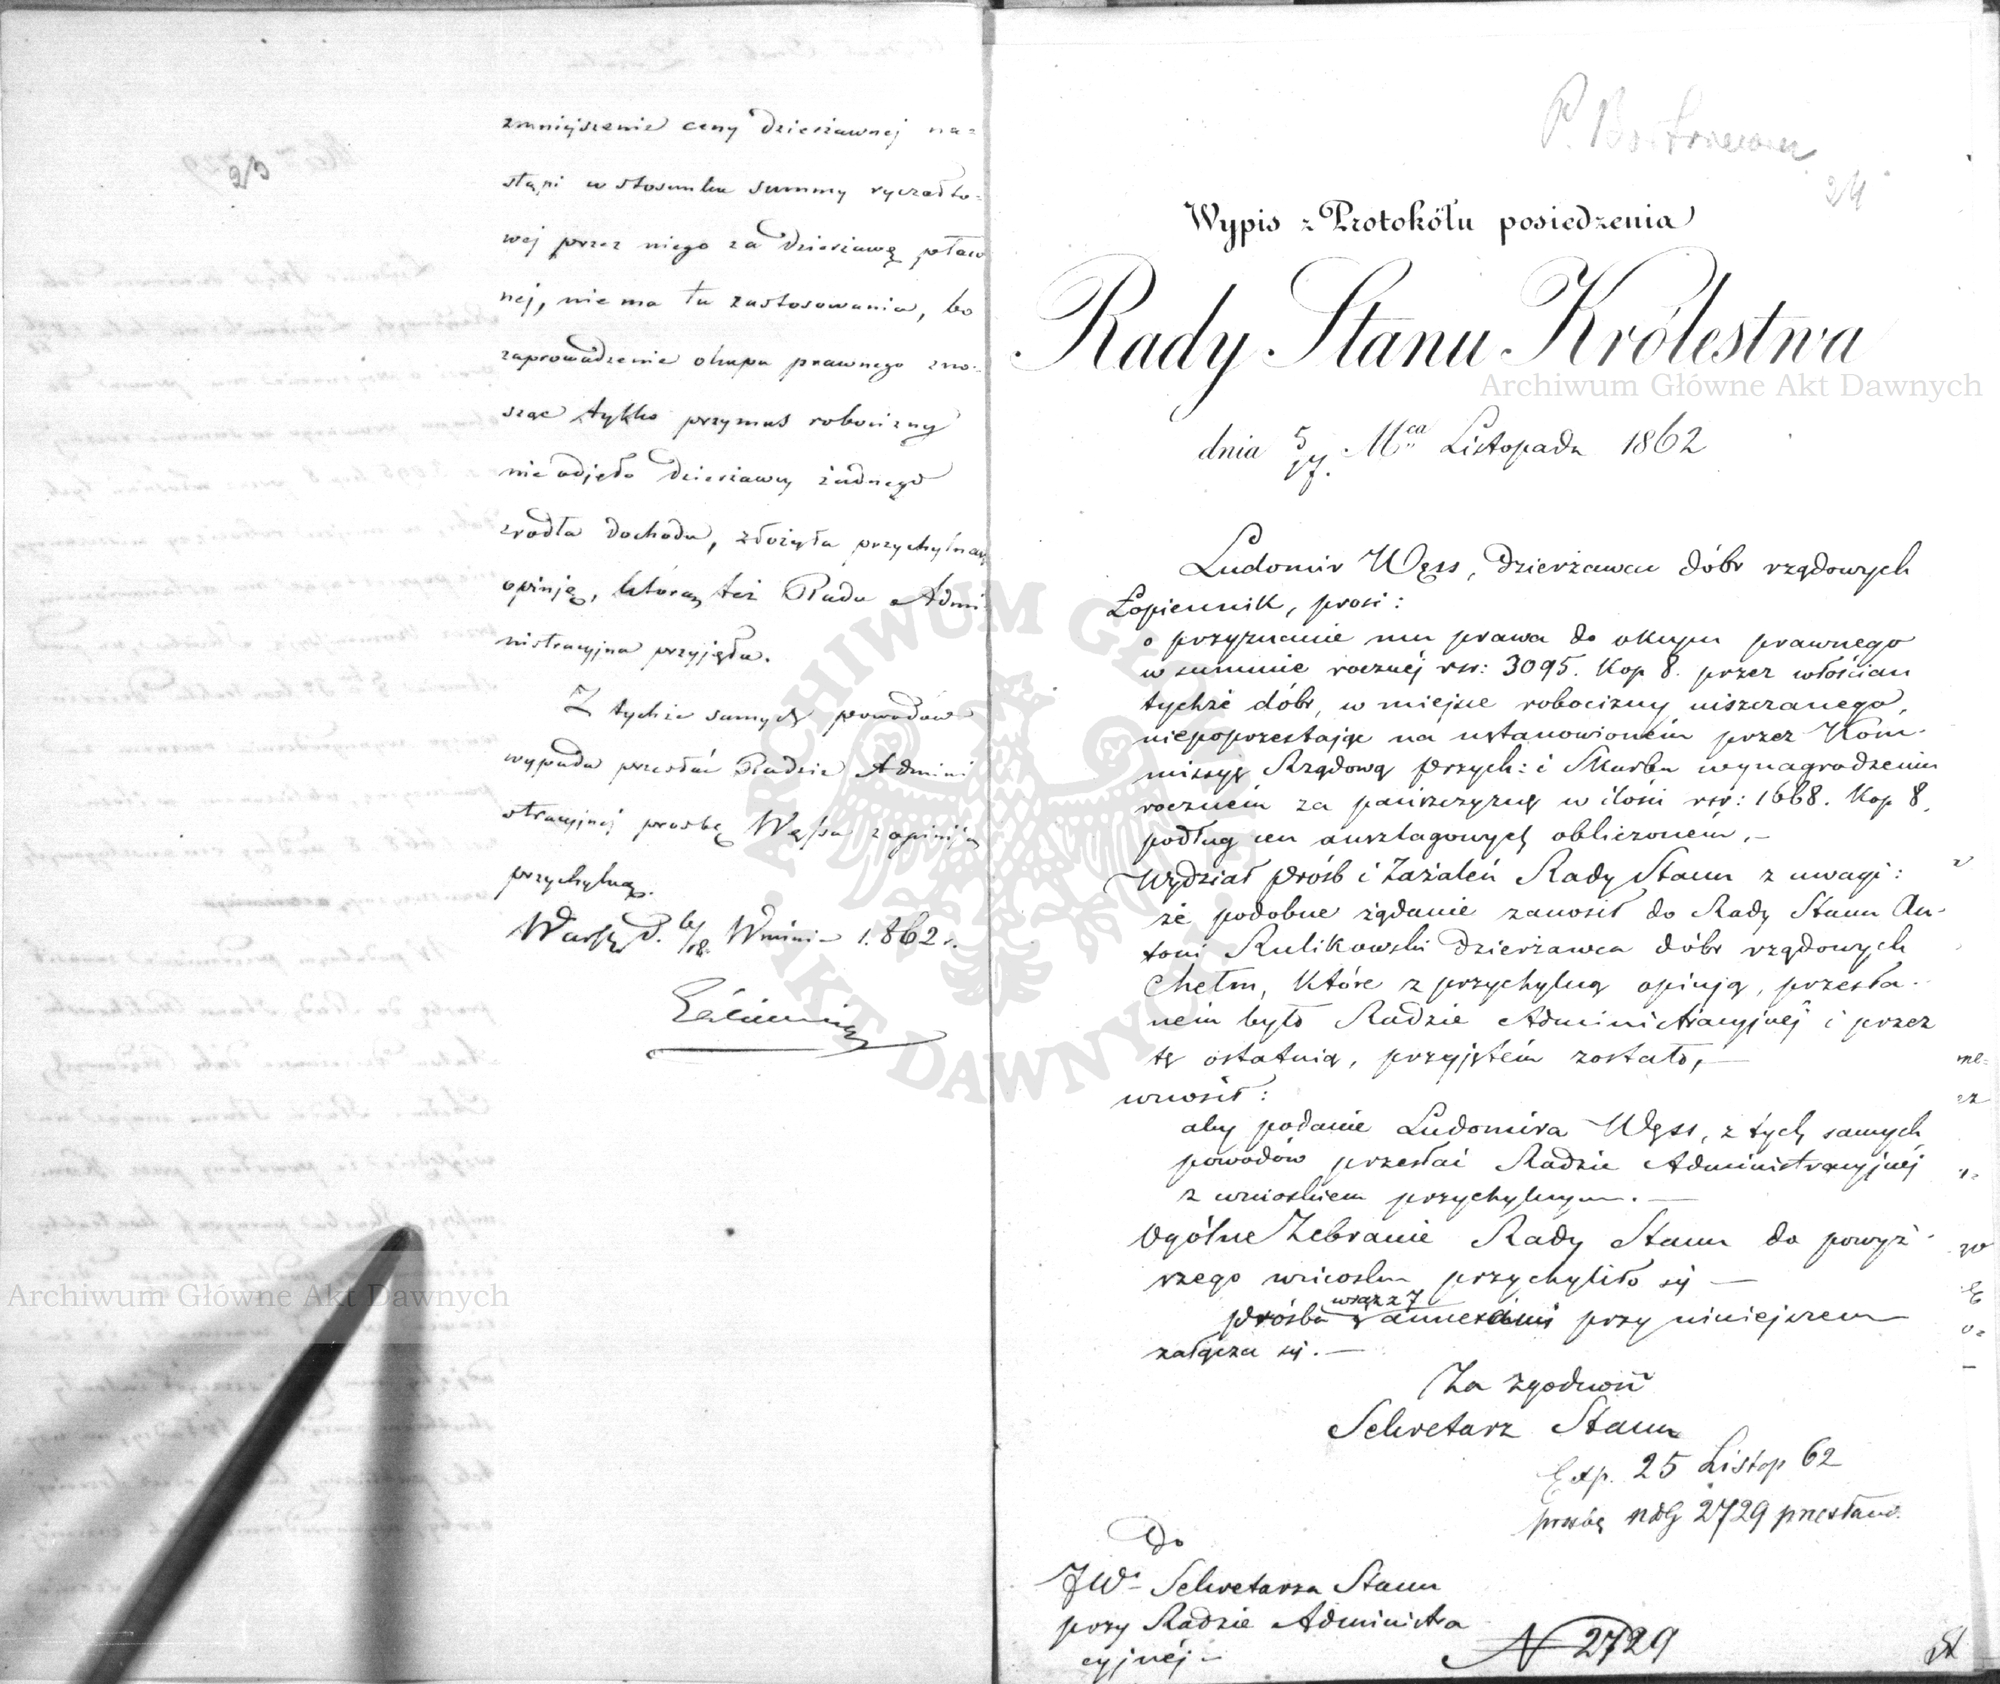 23
zmniejszenie ceny dzierżawnej na=
stąpi w stosunku summy ryczałto=
wej przez niego za dzierżawę płaco
nej, nie ma tu zastosowania, bo
zaprowadzenie okupu prawnego zno=
sząc tylko przymus robocizny
nie odjęło dzierżawcy żadnego
zrodła dochodu, złożyła przychylną
opinję, którą też Rada Admi
nistracyjna przyjęła.
Z tychże samych powodów
wypada przesłać Radzie Admini
stracyjnej prośbę Węssa z opinią
przychylną.
Warsz. d. 6/18. Wrześni 1862 r.
24
Wypis z Protokółu posiedzenia
Rady Stanu Królestwa
dnia 5/17. Mca Listopada 1862
Ludomir Węss, Dzierżawca dóbr rządowych
Łopiennik, prosi:
o przyznanie mu prawa do okupu prawnego
w summie rocznéj rsr: 3095. Kop 8. przez włościan
tychże dóbr, w miejsce robocizny uiszczanego,
niepoprzestając na ustanowioném przez Kom-
missyę Rządową Przych: i Skarbu wynagrodzeniu
roczném za pańszczyznę w ilości rsr: 1668. Kop 8,
podług cen ansztagowych obliczoném, –
Wydział Próśb i Zażaleń Rady Stanu z uwagi:
że podobne żądanie zanosił do Rady Stanu An-
toni Rulikowski Dzierżawca dóbr rządowych
Chełm, Które z przychylną opinją, przesła-
ném było Radzie Administracyjnéj i przez
tę ostatnią, przyjętém zostało, –
wnosił:
aby podanie Ludomira Węss, z tych samych
powodów przesłać Radzie Administracyjnéj
z wnioskiem przychylnym. –
Ogólne Zebranie Rady Stanu do powyż-
szego wniosku przychyliło się –
Prośba wraz z 7 annexami przy niniejszem
załącza się. –
Za zgodność
Sekretarz Stanu
Exp. 25 Listop 62
prośbę 2729 przesłano.
Do
JW Sekretarza Stanu
przy Radzie Administra
cyjnéj –
N 2729
Archiwum Główne Akt Dawnych
Archiwum Główne Akt Dawnych
ARCHIWUM GŁÓWNE AKT DAWNYCH